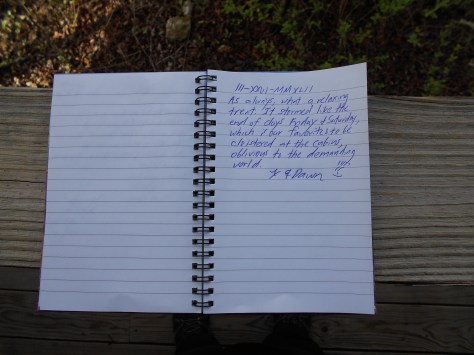 III-XXVI-MMXLII
As always, what a relaxing
treat. It stormed like the
end of days Friday & Saturday,
which is our favorite to be
cloistered at the cabins,
oblivious to the demanding
world.
& Dawn